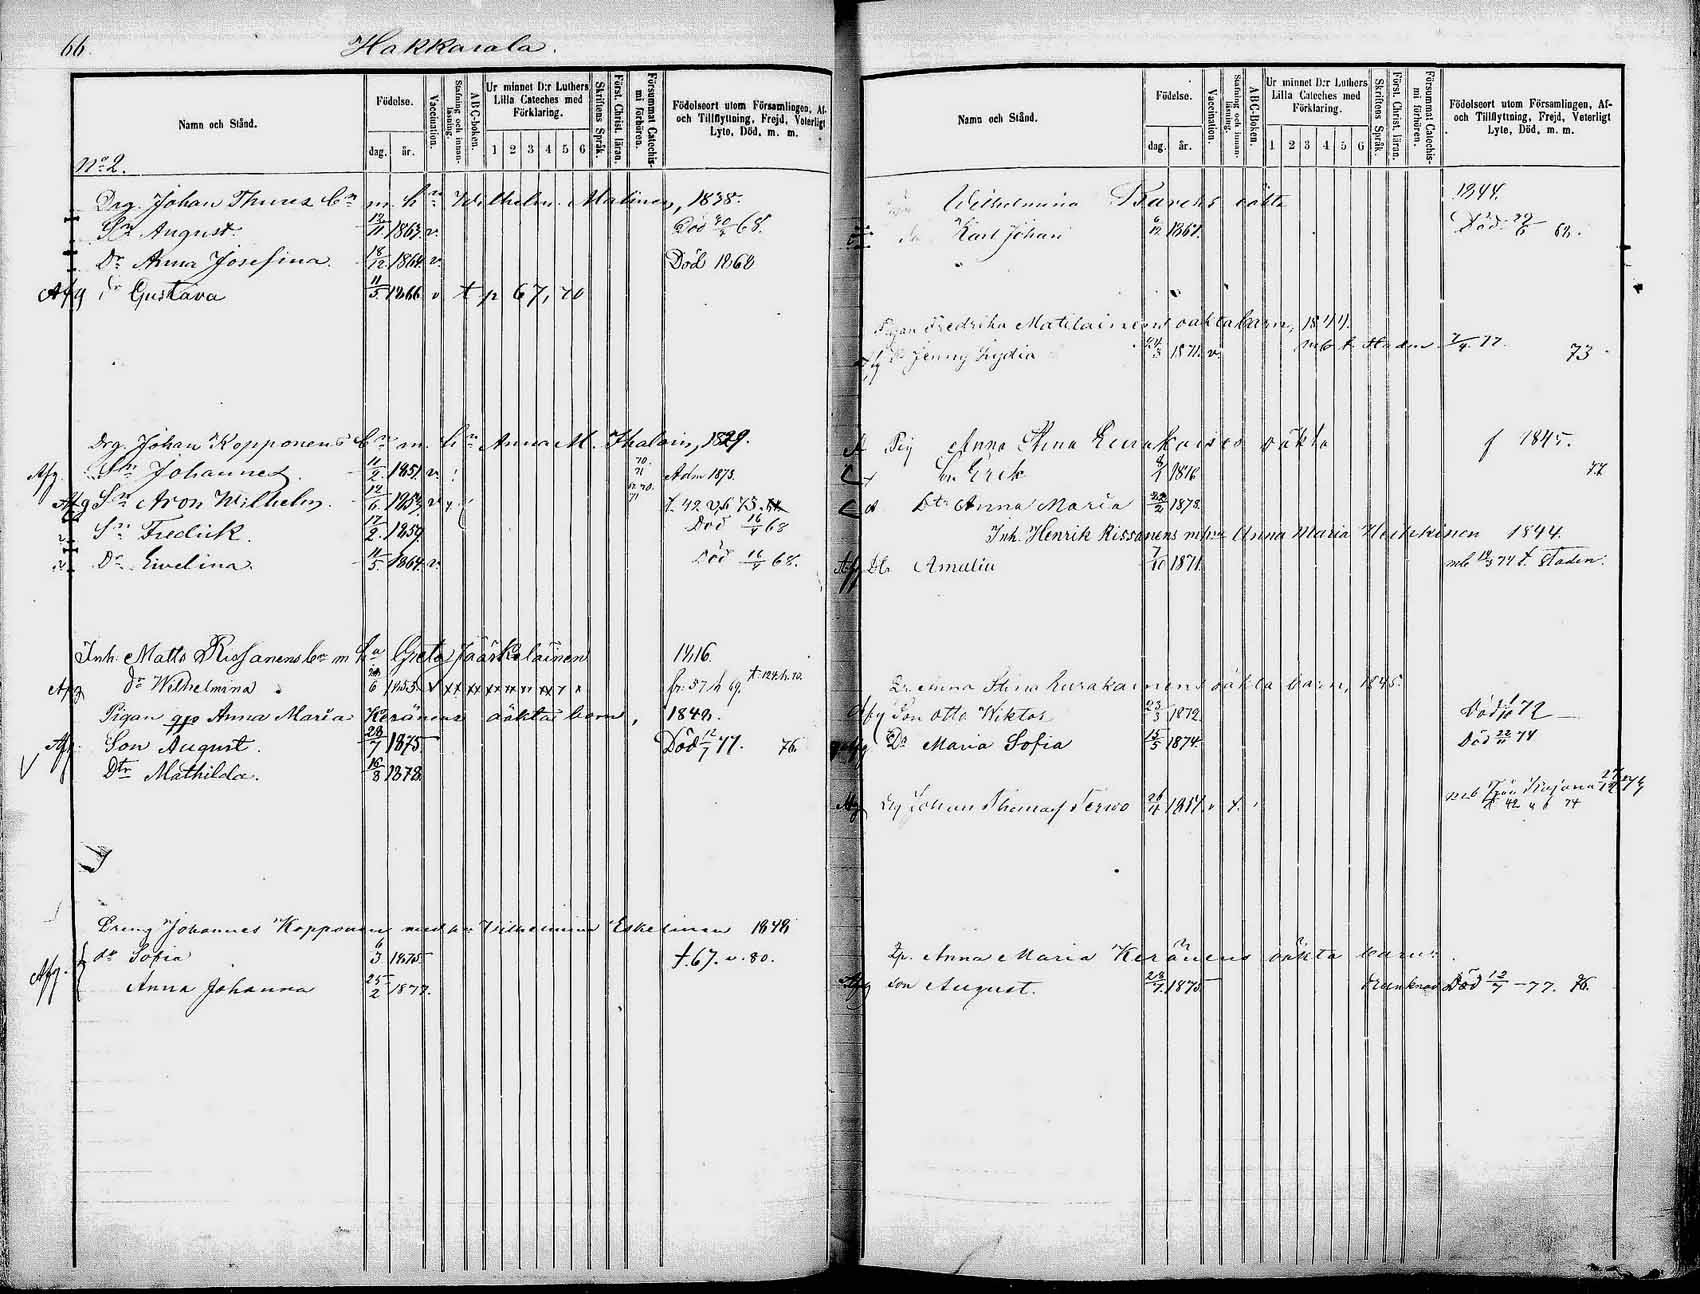 66.
Hakkarala.
Namn och Stånd.
Födelse.
dag. år.
Vaccination.
Stafning och innanläsning.
ABC-boken.
Ur minnet D:r Luthers Lilla Cateches med Förklaring.
1 2 3 4 5 6
Skriftens Språk.
Först. Christ. läran.
Försummat Catechismi förhören.
Födelseort utom Församlingen, Af- och Tillflyttning, Frejd, Veterligt Lyte, Död, m. m.
No 2.
Drg. Johan Thures bn m. hn Wilhelm. Matinen, 1838.
Sn August. 13/11 1863. v. Död 20/4 68.
Dr Anna Josefina. 18/12 1864. v. Död 1868
Afg dr Gustava 11/5 1866 v t p 67, 70
Drg. Johan Kopponens bn m. hn Anna M. Ihalain, 1829.
Afg. Sn Johannes. 11/2 1851. v. 70. 71 Adm 1873.
Afg Sn Aron Wilhelm. 12/6 1853. v 70. 71 t. 42 75.
Sn Fredrik. 17/2 1859. Död 16/4 68
Dr Evelina. 11/5 1864. v. Död 16/4 68.
Inh. Matts Rissanens bn m ha Greta Jääskeläinen 1816.
Afg dr Wilhelmina 6 1855. v xx xx xx xx x x fr: 57 69. t 124. h. 70.
Pigan Anna Maria Keränens oäkta barn, 1848.
Afg. Son August. 28/7 1875. Död 12/7 77. 76
Dtr Mathilda. 16/8 1878.
Dreng Johannes Kopponen med hu Wilhelmina Eskelinen 1848
Afg. dr Sofia 6/3 1875 t. 67. v. 80.
Anna Johanna 25/2 1877.
Namn och Stånd.
Födelse.
dag. år.
Vaccination.
Stafning och innanläsning.
ABC-Boken.
Ur minnet D:r Luthers Lilla Cateches med Förklaring.
1 2 3 4 5 6
Skriftens Språk.
Först. Christ. läran.
Försummat Catechismi förhören.
Födelseort utom Församlingen, Af- och Tillflyttning, Frejd, Veterligt Lyte, Död, m. m.
Wilhelmina oäkta 1844.
Karl Johan 6/12 1867. Död 22/6 68.
Pigan Fredrika Matilainens oäkta barn, 1844.
Afg Jenny Lydia 24/3 1871. v. mb t. Staden 7/4. 77. 73
Pig Anna Stina Kurakaisen oäkta f 1845.
Sn Erik 1876 77
Dtr Anna Maria 22/2 1878.
Inh. Henrik Rissanens m hu Anna Maria Heikkinen 1844.
Afg Dtr Amalia 7/10 1871 mb 74 t. Staden.
Anna Stina Kurakainens oäkta barn, 1845.
Afg Son Otto Wiktor 23/3 1872 Död 72
Afg Dr Maria Sofia 15/5 1874. Död 22/11 74
Afg Drg Johan Thomas Terwo 26/4 1851. v mb från Kajana 74
t 42 u b 74
Anna Maria Keränens oäkta barn.
Afg son August. 28/7. 1875 Död 12/7 - 77. 76.